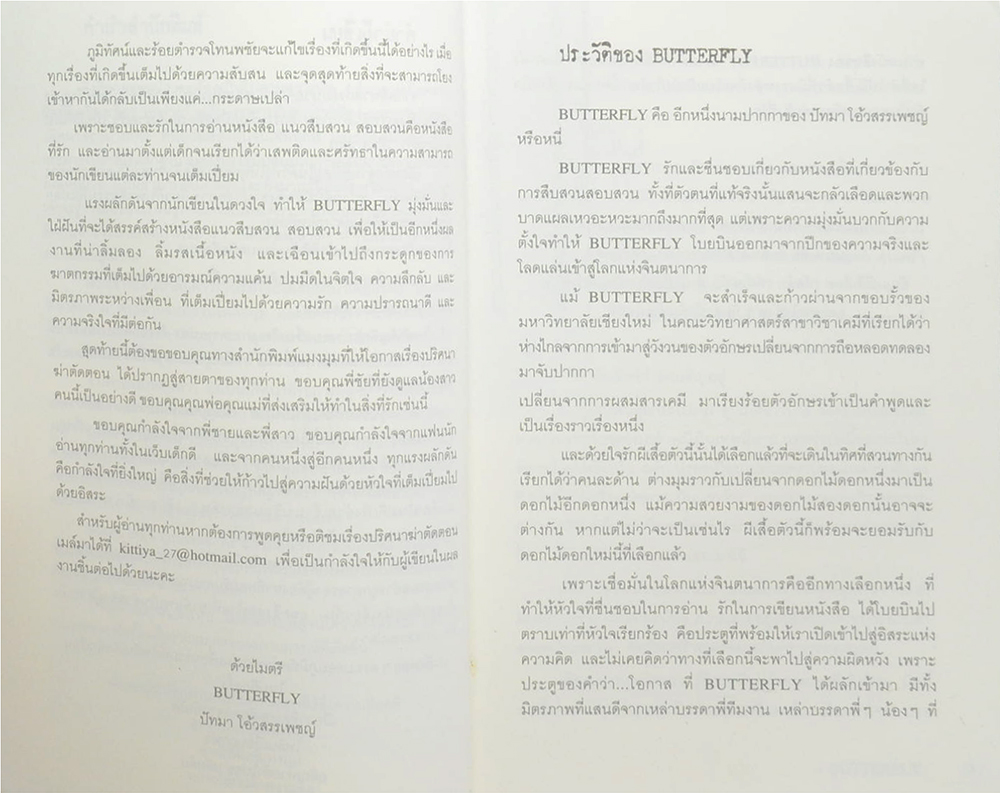 ภูมิทัศน์และร้อยตำรวจโทนพชัยจะแก้ไขเรื่องที่เกิดขึ้นนี้ได้อย่างไร เมื่อ
ทุกเรื่องที่เกิดขึ้นเต็มไปด้วยความสับสน และจุดสุดท้ายสิ่งที่จะสามารถโยง
เข้าหากันได้กลับเป็นเพียงแค่...กระดาษเปล่า
เพราะชอบและรักในการอ่านหนังสือ แนวสืบสวน สอบสวนคือหนังสือ
ที่รัก และอ่านมาตั้งแต่เด็กจนเรียกได้ว่าเสพติดและศรัทธาในความสามารถ
ของนักเขียนแต่ละท่านจนเต็มเปี่ยม
แรงผลักดันจากนักเขียนในดวงใจ ทำให้ BUTTERFLY มุ่งมั่นและ
ใฝ่ฝันที่จะได้สรรค์สร้างหนังสือแนวสืบสวน สอบสวน เพื่อให้เป็นอีกหนึ่งผล
งานที่น่าลิ้มลอง ลิ้มรสเนื้อหนัง และเฉือนเข้าไปถึงกระดูกของการ
ฆาตกรรมที่เต็มไปด้วยอารมณ์ความแค้น ปมมืดในจิตใจ ความลึกลับ และ
มิตรภาพระหว่างเพื่อน ที่เต็มเปี่ยมไปด้วยความรัก ความปรารถนาดี และ
ความจริงใจที่มีต่อกัน
สุดท้ายนี้ต้องขอขอบคุณทางสำนักพิมพ์แมงมุมที่ให้โอกาสเรื่องปริศนา
ฆ่าตัดตอน ได้ปรากฏสู่สายตาของทุกท่าน ขอบคุณพี่ชัยที่ยังดูแลน้องสาว
คนนี้เป็นอย่างดี ขอบคุณคุณพ่อคุณแม่ที่ส่งเสริมให้ทำในสิ่งที่รักเช่นนี้
ขอบคุณกำลังใจจากพี่ชายและพี่สาว ขอบคุณกำลังใจจากแฟนนัก
อ่านทุกท่านทั้งในเว็บเด็กดี และจากคนหนึ่งสู่อีกคนหนึ่ง ทุกแรงผลักดัน
คือกำลังใจที่ยิ่งใหญ่ คือสิ่งที่ช่วยให้ก้าวไปสู่ความฝันด้วยหัวใจที่เต็มเปี่ยมไป
ด้วยอิสระ
สำหรับผู้อ่านทุกท่านหากต้องการพูดคุยหรือติชมเรื่องปริศนาฆ่าตัดตอน
เมล์มาได้ที่ kittiya_27@hotmail.com เพื่อเป็นกำลังใจให้กับผู้เขียนในผล
งานชิ้นต่อไปด้วยนะคะ
ด้วยไมตรี
BUTTERFLY
ปัทมา โอ้วสรรเพชญ์
ประวัติของ BUTTERFLY
BUTTERFLY คือ อีกหนึ่งนามปากกาของ ปัทมา โอ้วสรรเพชญ์
หรือหนี่
BUTTERFLY รักและชื่นชอบเกี่ยวกับหนังสือที่เกี่ยวข้องกับ
การสืบสวนสอบสวน ทั้งที่ตัวตนที่แท้จริงนั้นแสนจะกลัวเลือดและพวก
บาดแผลเหวอะหวะมากถึงมากที่สุด แต่เพราะความมุ่งมั่นบวกกับความ
ตั้งใจทำให้ BUTTERFLY โบยบินออกมาจากปีกของความจริงและ
โลดแล่นเข้าสู่โลกแห่งจินตนาการ
แม้ BUTTERFLY จะสำเร็จและก้าวผ่านจากขอบรั้วของ
มหาวิทยาลัยเชียงใหม่ ในคณะวิทยาศาสตร์สาขาวิชาเคมีที่เรียกได้ว่า
ห่างไกลจากการเข้ามาสู่วังวนของตัวอักษรเปลี่ยนจากการถือหลอดทดลอง
มาจับปากกา
เปลี่ยนจากการผสมสารเคมี มาเรียงร้อยตัวอักษรเข้าเป็นคำพูดและ
เป็นเรื่องราวเรื่องหนึ่ง
และด้วยใจรักผีเสื้อตัวนี้นั้นได้เลือกแล้วที่จะเดินในทิศที่สวนทางกัน
เรียกได้ว่าคนละด้าน ต่างมุมราวกับเปลี่ยนจากดอกไม้ดอกหนึ่งมาเป็น
ดอกไม้อีกดอกหนึ่ง แม้ความสวยงามของดอกไม้สองดอกนั้นอาจจะ
ต่างกัน หากแต่ไม่ว่าจะเป็นเช่นไร ผีเสื้อตัวนี้ก็พร้อมจะยอมรับกับ
ดอกไม้ดอกใหม่นี้ที่เลือกแล้ว
เพราะเชื่อมั่นในโลกแห่งจินตนาการคืออีกทางเลือกหนึ่ง ที่
ทำให้หัวใจที่ชื่นชอบในการอ่าน รักในการเขียนหนังสือ ได้โบยบินไป
ตราบเท่าที่หัวใจเรียกร้อง คือประตูที่พร้อมให้เราเปิดเข้าไปสู่อิสระแห่ง
ความคิด และไม่เคยคิดว่าทางที่เลือกนี้จะพาไปสู่ความผิดหวัง เพราะ
ประตูของคำว่า...โอกาส ที่ BUTTERFLY ได้ผลักเข้ามา มีทั้ง
มิตรภาพที่แสนดีจากเหล่าบรรดาพี่ทีมงาน เหล่าบรรดาพี่ๆ น้องๆ ที่